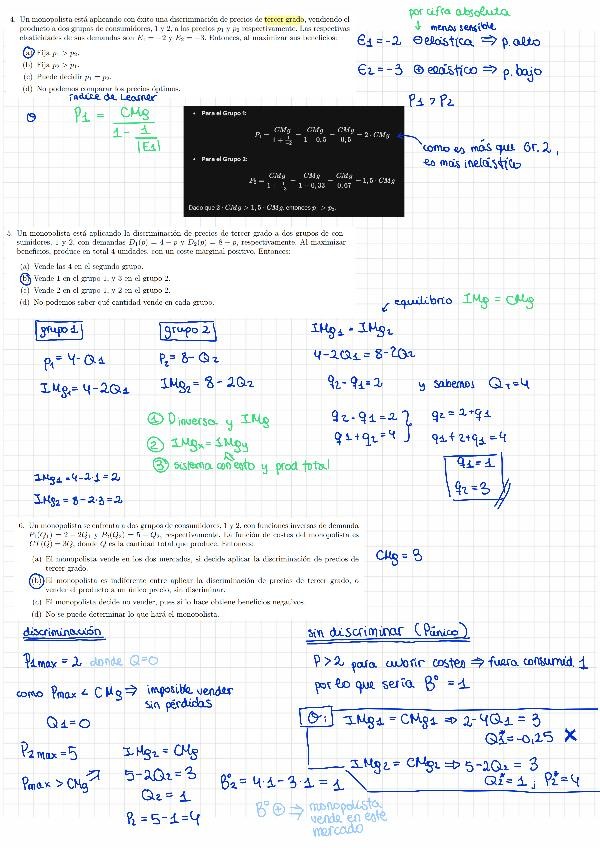 4. Un monopolista está aplicando con éxito una discriminación de precios de tercer grado, vendiendo el
producto a dos grupos de consumidores, 1 y 2, a los precios p₁ y p₂ respectivamente. Las respectivas
elasticidades de sus demandas son E₁ = −2 y E₂ = −3. Entonces, al maximizar sus beneficios:
(a) Fija p₁ > p₂.
(b) Fija p₂ > p₁.
(c) Puede decidir p₁ = p₂.
(d) No podemos comparar los precios óptimos.
por cifra absoluta
↓ menos sensible
E1 = -2 ⊖elástica ⇒ p. alto
E2 = -3 ⊕elástico ⇒ p. bajo
P1 > P2
índice de Learner
P1 = CMg / (1 - 1/|E1|)
• Para el Grupo 1:
P₁ = CMg / (1 + 1/−2) = CMg / (1 − 0,5) = CMg / 0,5 = 2 · CMg
• Para el Grupo 2:
P₂ = CMg / (1 + 1/−3) = CMg / (1 − 0,33) = CMg / 0,67 = 1,5 · CMg
Dado que 2 · CMg > 1,5 · CMg, entonces p₁ > p₂.
como es más que Gr. 2,
es más inelástico
5. Un monopolista está aplicando la discriminación de precios de tercer grado a dos grupos de con-
sumidores, 1 y 2, con demandas D₁(p) = 4 − p y D₂(p) = 8 − p, respectivamente. Al maximizar
beneficios, produce en total 4 unidades, con un coste marginal positivo. Entonces:
(a) Vende las 4 en el segundo grupo.
(b) Vende 1 en el grupo 1, y 3 en el grupo 2.
(c) Vende 2 en el grupo 1, y 2 en el grupo 2.
(d) No podemos saber qué cantidad vende en cada grupo.
equilibrio IMg = CMg
grupo 1
P1 = 4 - Q1
IMg1 = 4 - 2Q1
grupo 2
P2 = 8 - Q2
IMg2 = 8 - 2Q2
IMg1 = IMg2
4 - 2Q1 = 8 - 2Q2
q2 - q1 = 2 y sabemos QT = 4
q2 - q1 = 2
q1 + q2 = 4
q2 = 2 + q1
q1 + 2 + q1 = 4
q1 = 1
q2 = 3
① D inversa y IMg
② IMgx = IMgy
③ sistema con esto y prod total
IMg1 = 4 - 2·1 = 2
IMg2 = 8 - 2·3 = 2
6. Un monopolista se enfrenta a dos grupos de consumidores, 1 y 2, con funciones inversas de demanda
P₁(Q₁) = 2 − 2Q₁ y P₂(Q₂) = 5 − Q₂, respectivamente. La función de costes del monopolista es
CT(Q) = 3Q, donde Q es la cantidad total que produce. Entonces:
(a) El monopolista vende en los dos mercados, si decide aplicar la discriminación de precios de
tercer grado.
(b) El monopolista es indiferente entre aplicar la discriminación de precios de tercer grado, o
vender el producto a un único precio, sin discriminar.
(c) El monopolista decide no vender, pues si lo hace obtiene beneficios negativos.
(d) No se puede determinar lo que hará el monopolista.
CMg = 3
discriminación
P1max = 2 donde Q=0
como Pmax < CMg ⇒ imposible vender
sin pérdidas
Q1 = 0
P2max = 5
Pmax > CMg
IMg2 = CMg
5 - 2Q2 = 3
Q2 = 1
P2 = 5 - 1 = 4
B°2 = 4·1 - 3·1 = 1
B° ⊕ ⇒ monopolista
vende en este
mercado
sin discriminar (Púnico)
P > 2 para cubrir costes ⇒ fuera consumid. 1
por lo que sería B° = 1
O: IMg1 = CMg1 ⇒ 2 - 4Q1 = 3
Q1* = -0,25 X
IMg2 = CMg2 ⇒ 5 - 2Q2 = 3
Q2* = 1 ; P2* = 4